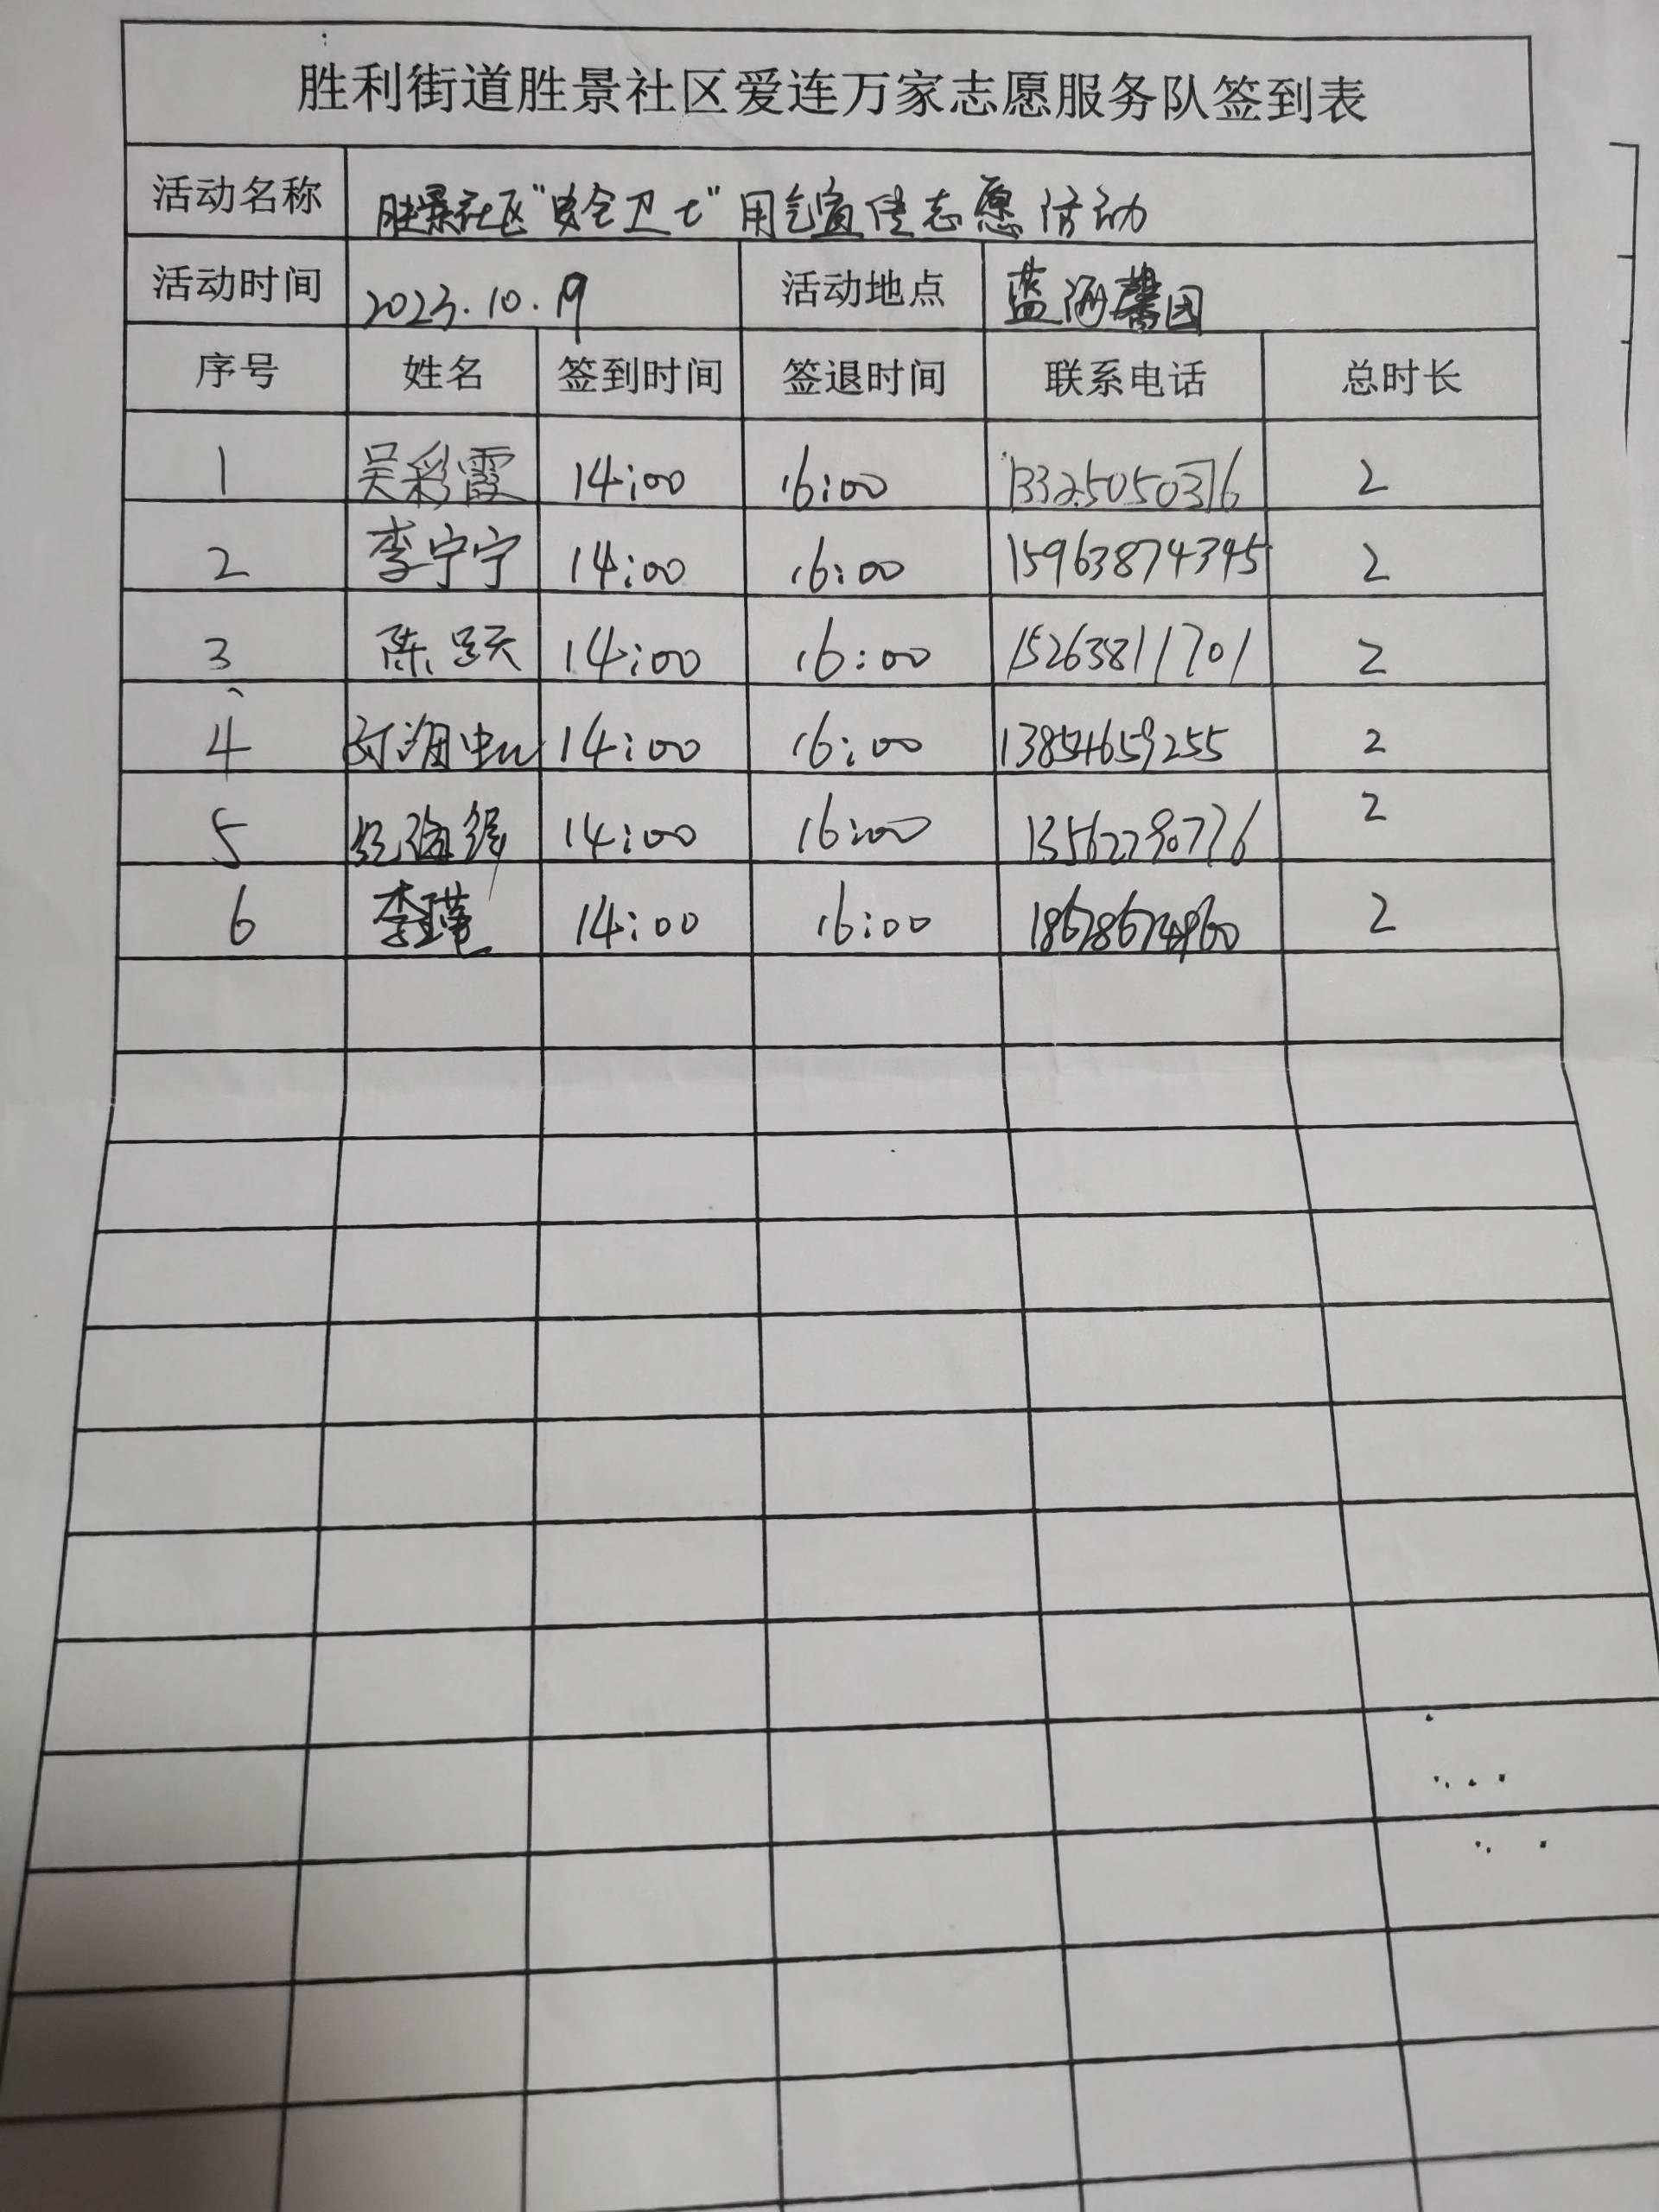 胜利街道胜景社区爱连万家志愿服务队签到表
活动名称 胜景社区"安全卫士"用气宣传志愿活动
活动时间 2023.10.19 活动地点 蓝海馨园
序号 姓名 签到时间 签退时间 联系电话 总时长
1 吴彩霞 14:00 16:00 13325050376 2
2 李宁宁 14:00 16:00 15963874345 2
3 陈跃 14:00 16:00 15263811701 2
4 14:00 16:00 13854659255 2
5 14:00 16:00 13562290776 2
6 李瑾 14:00 16:00 2